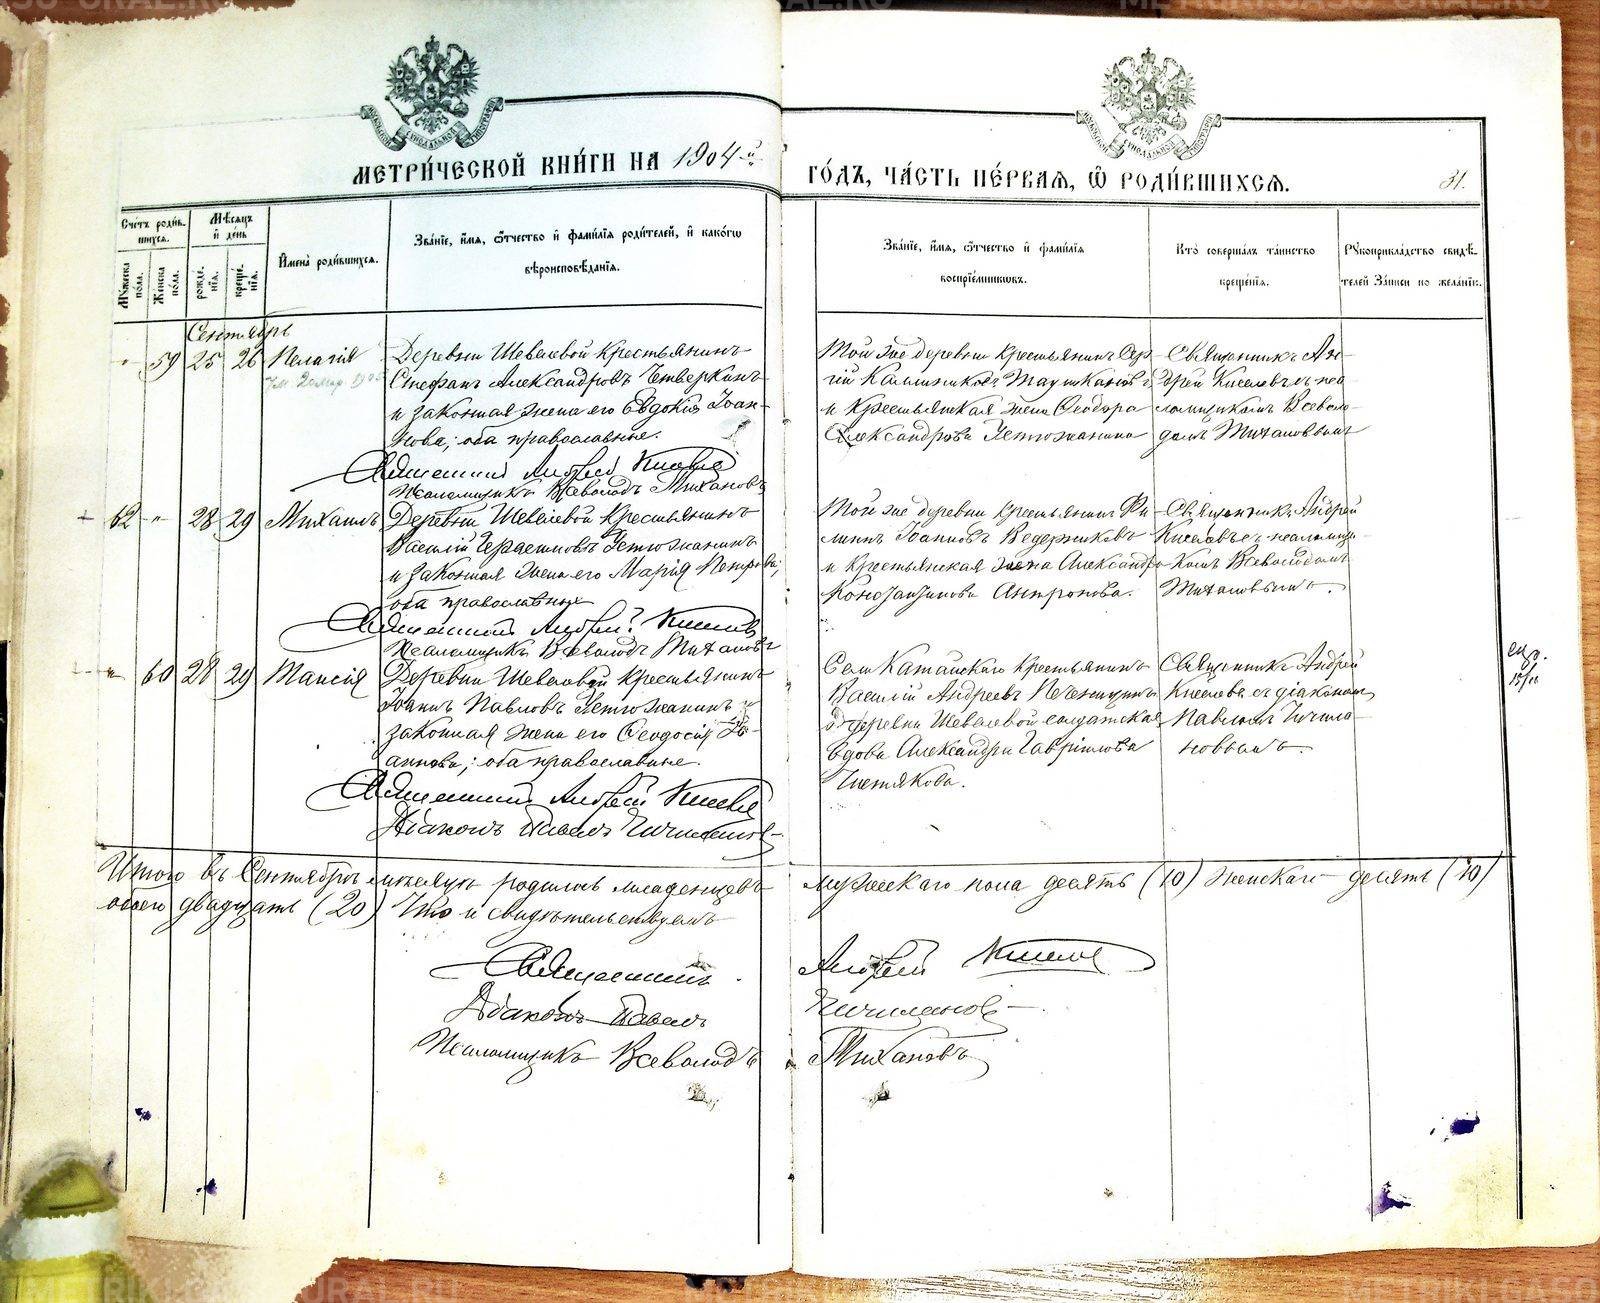 МЕТРИ́ЧЕСКОЙ КНИ́ГИ НА 1904 й
ГО́ДЪ, ЧА́СТЬ ПЕ́РВАЯ, Ѿ РОДИ́ВШИХСЯ.
31.
Сче́тъ роди́в-
шихся.
Мѣ́сяцъ
и де́нь
Му́жеска по́ла.
Же́нска по́ла.
рожде́нія.
креще́нія.
Имена̀ роди́вшихся.
Зва́нїе, и́мя, ѻ́тчество и фами́лїя роди́телей, и како́гѡ
вѣроисповѣ́данїя.
Зва́нїе, и́мя, ѻ́тчество и фами́лїя
воспрїе́мникѡвъ.
Кто̀ соверша́лъ та́инство
креще́нїя.
Рꙋкоприкла́дство свидѣ́-
телей за́писи по жела́нїю.
Сентябрь
" 59 25 26 Пелагія
Деревни Шевелевой крестьянинъ
Стефанъ Александровъ Четверкинъ
и законная жена его Евдокія Іоан-
нова; оба православные.
Священникъ Андрей Киселевъ
Псаломщикъ Всеволодъ Тихановъ
Той же деревни крестьянинъ Сер-
гій Калинниковъ
и крестьянская жена Ѳеодора
Александрова Устюжанина
Священникъ Ан-
дрей Киселевъ съ пса-
ломщикомъ Всеволо-
домъ Тихановымъ
+ 62 " 28 29 Михаилъ
Деревни Шевелевой крестьянинъ
Василій Герасимовъ Устюжанинъ
и законная жена его Марія Петрова;
оба православные
Священникъ Андрей Киселевъ
Псаломщикъ Всеволодъ Тихановъ
Той же деревни крестьянинъ Фи-
липпъ Іоанновъ Ведерниковъ
и крестьянская жена Александра
Константинова Антропова.
Священникъ Андрей
Киселевъ съ псаломщи-
комъ Всеволодомъ
Тихановымъ.
" 60 28 29 Таисія
Деревни Шевелевой крестьянинъ
Іоаннъ Павловъ Устюжанинъ и
законная жена его Ѳеодосія Іо-
аннова; оба православные.
Священникъ Андрей Киселевъ
Діаконъ Павелъ Чичиланов
Села Катайскаго крестьянинъ
Василій Андреевъ Печенкинъ
и деревни Шевелевой солдатская
вдова Александра Гаврилова
Чистякова.
Священникъ Андрей
Киселевъ съ діакономъ
Павломъ Чичила-
новымъ.
Итого въ Сентябрѣ мѣсяцѣ родилось младенцевъ мужескаго пола десять (10) женскаго десять (10)
обоего двадцать (20) Что и свидѣтельствуемъ
Священникъ Андрей Киселевъ
Діаконъ Павелъ Чичиланов
Псаломщикъ Всеволодъ Тихановъ